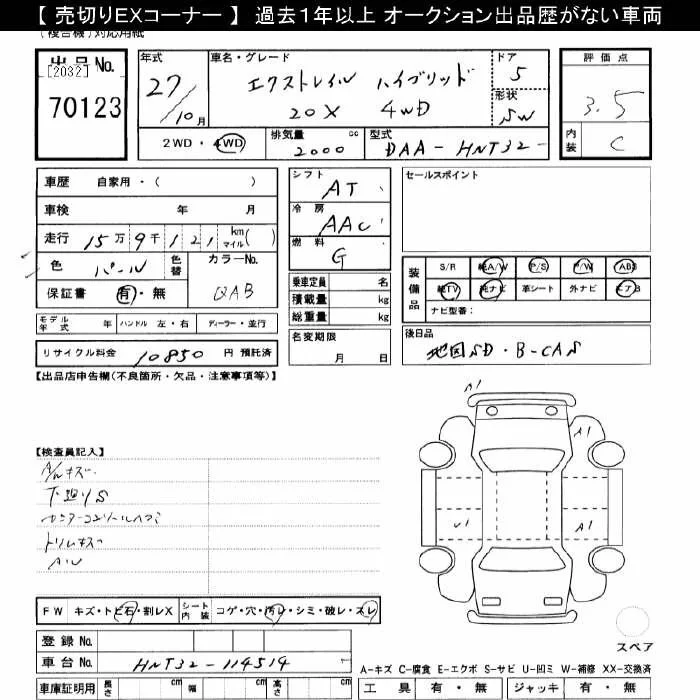 【 売切りEXコーナー 】 過去１年以上 オークション出品歴がない車両
(複合機)対応用紙
出品No.
[2032]
70123
年式
27/10月
車名・グレード
エクストレイル ハイブリッド
20X 4WD
ドア
5
形状
SW
評価点
3.5
内装
C
2WD・4WD
排気量 cc
2000
型式
DAA-HNT32-
車歴 自家用・( )
車検 年 月
走行 15万9千121 km マイル( )
色 パール
色替
カラーNo.
QAB
保証書 有・無
シフト
AT
冷房
AAC
燃料
G
乗車定員 名
積載量 kg
総重量 kg
セールスポイント
装備品
S/R 純A/W P/S P/W ABS
純TV 純ナビ 革シート 外ナビ エアB
ナビ型番:
モデル年式 年 ハンドル 左・右 ディーラー・並行
リサイクル料金 10850 円 預託済
名変期限
月 日
後日品
地図SD・B-CAS
【出品店申告欄(不良箇所・欠品・注意事項等)】
【検査員記入】
A/Wキズ
下廻りS
センターコンソールヘコミ
トリムキズ
A・U
A1
A1
U1
A1
FW キズ・トビ石・割レX
シート内装 コゲ・穴・汚レ・シミ・破レ・スレ
登録No.
車台No. HNT32-114514
車庫証明用 長さ cm 幅 cm 高さ cm
スペア
A-キズ C-腐食 E-エクボ S-サビ U-凹ミ W-補修 XX-交換済
工具 有・無 ジャッキ 有・無